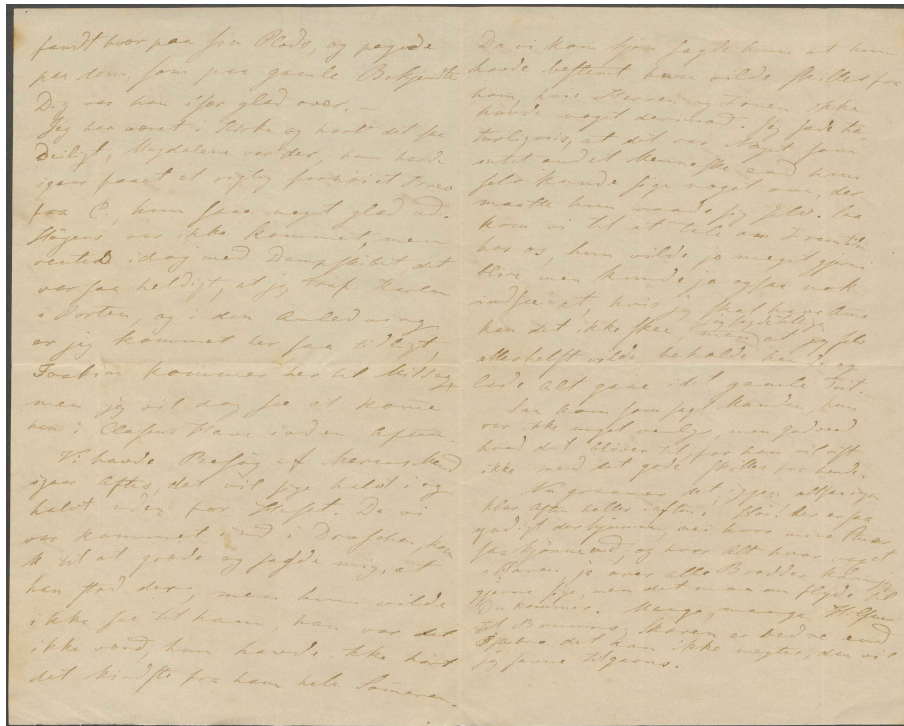 fandt hver paa sin Plads, og pegede
paa dem, som paa gamle Bekjendte
Dig var han især glad over. —
Jeg har været i Kirke og hørt det saa
deiligt, Magdalene var der, hun havde
igaar faaet et rigtig fornøiet Brev
fra C, hun saae meget glad ud.
var ikke kommet, men
ventes idag med Dampskibet, det
var saa heldigt, at jeg traf Karlen
i Porten, og i den Anledning
er jeg kommet her saa tidligt,
Joakim kommer her til Middag
men jeg vil dog see at komme
hen i Clasens Have inden Aften.
Vi havde Besøg af Marens Mand
igaar Aftes, det vil sige halvt i og
halvt uden for Huset. Da vi
var kommet ind i Droschen, kom
til at græde og sagde mig, at
han stod der, men hun vilde
ikke see til ham, han var det
ikke værd, hun havde ikke hørt
det mindste fra ham hele Sommeren
Da vi kom hjem sagde hun at hun
havde bestemt hun vilde skilles fra
ham hvis Herren og Fruen ikke
havde noget derimod. Jeg sagde na
turligviis, at det var Noget som
intet andet Menneske end hun
selv kunde sige noget om, der
maatte hun raade sig selv. Saa
kom vi til at tale om Fremtiden
hos os, hun vilde jo meget gjerne
blive men kunde jo ogsaa nok
indsee at, hvis jeg skal have
kan det ikke skee at jeg selv
allerhelst vilde beholde hende og
lade alt gaae i det gamle
Saa kom som sagt Manden, han
var ikke meget venlig, men Gud veed
hvad det bliver til for han vil vist
ikke med det gode skilles fra hende.
Nu graaner det igjen
klar Aften heller i Aften. der er saa
yndigt der hjemme, nei hvor mine
og hvor alt hvad
i Haven jo over alle Bredder,
gjerne sige, men det maa
Du kommer. Mange, mange Hilsner
til Skoven er bedre end
det kan ikke negtes, den vil
jeg savne